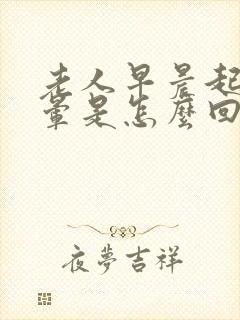 老人早晨起
暈是怎麼回
夜夢吉祥